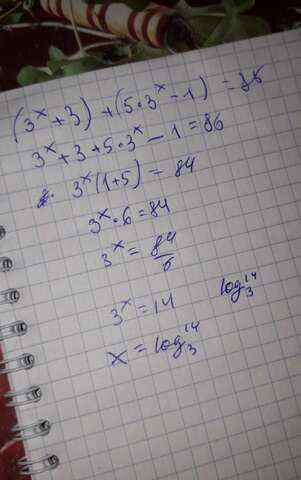 (3^x + 3) + (5·3^x − 1) = 86
3^x + 3 + 5·3^x − 1 = 86
3^x (1+5) = 84
3^x · 6 = 84
3^x = 84/6
3^x = 14 log_3^14
x = log_3^14